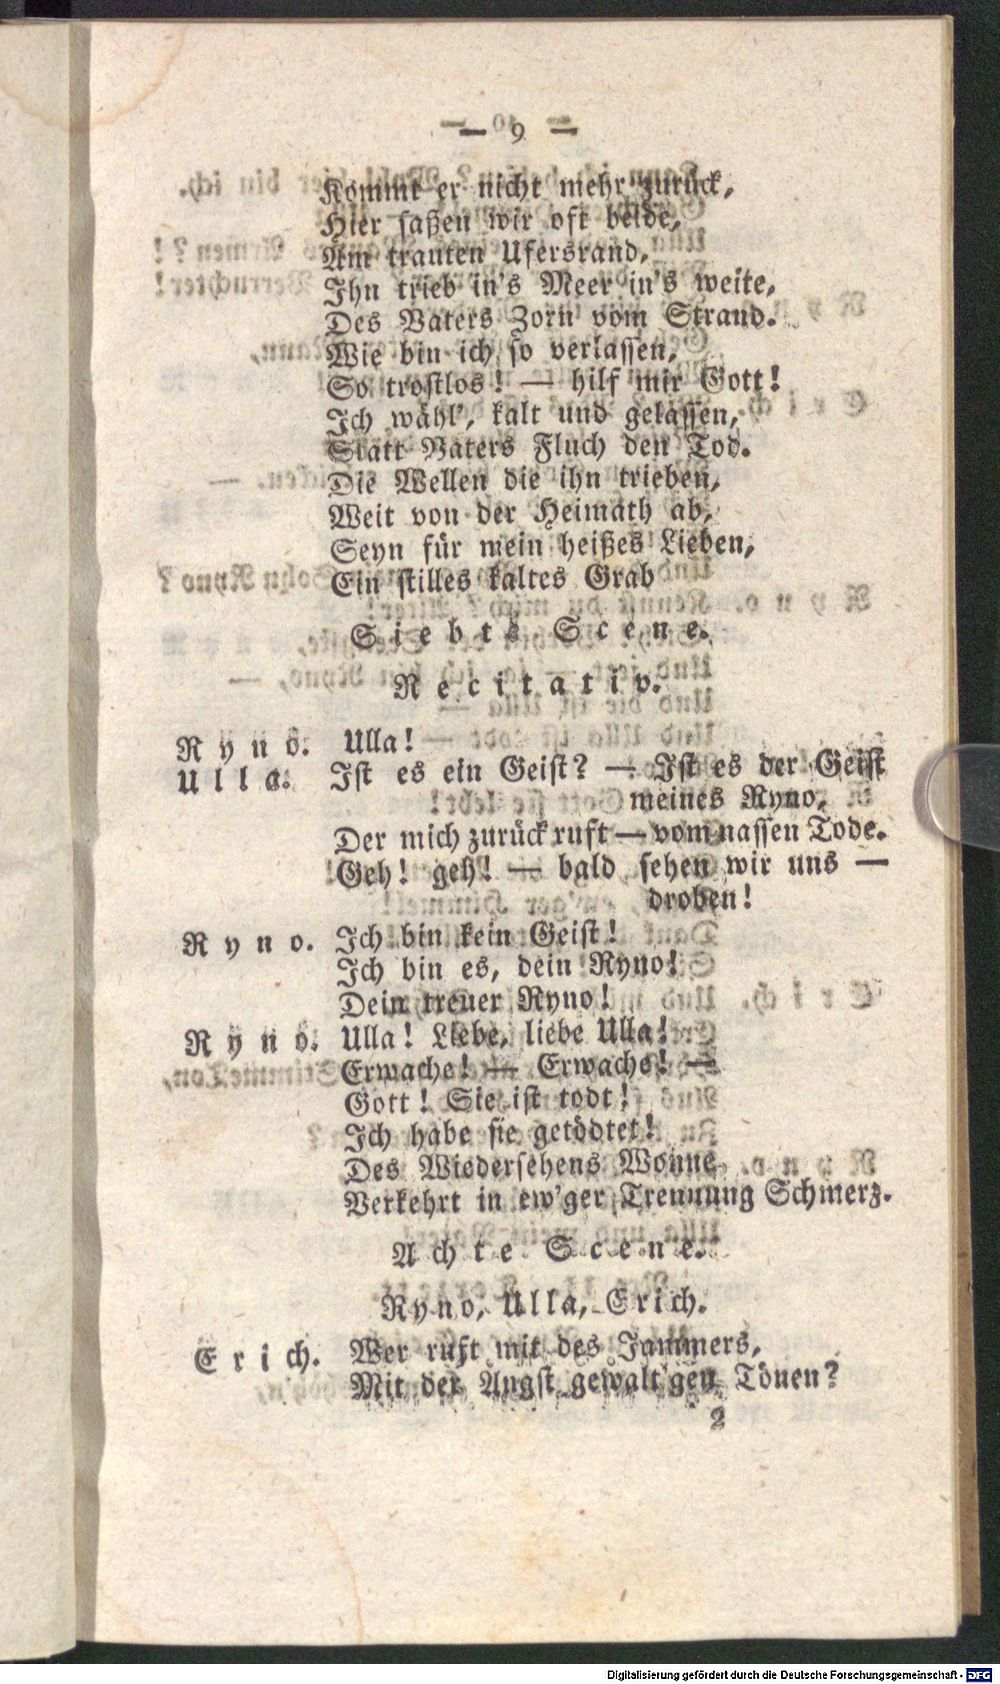 — 9 —
Kommt er nicht mehr zurück,
Hier saßen wir oft beide,
Am trauten Ufersrand,
Ihn trieb in's Meer in's weite,
Des Vaters Zorn vom Strand.
Wie bin ich so verlassen,
So trostlos! — hilf mir Gott!
Ich wähl', kalt und gelassen,
Statt Vaters Fluch den Tod.
Die Wellen die ihn trieben,
Weit von der Heimath ab,
Seyn für mein heißes Lieben,
Ein stilles kaltes Grab
Siebte Scene.
Recitativ.
Ryno. Ulla!
Ulla. Ist es ein Geist? — Ist es der Geist
meines Ryno,
Der mich zurück ruft — vom nassen Tode.
Geh! geh! — bald sehen wir uns —
droben!
Ryno. Ich bin kein Geist!
Ich bin es, dein Ryno!
Dein treuer Ryno!
Ryno. Ulla! Liebe, liebe Ulla!
Erwache! — Erwache! —
Gott! Sie ist todt!
Ich habe sie getödtet!
Des Wiedersehens Wonne
Verkehrt in ew'ger Trennung Schmerz.
Achte Scene.
Ryno, Ulla, Erich.
Erich. Wer ruft mit des Jammers,
Mit der Angst gewalt'gen Tönen?
2
Digitalisierung gefördert durch die Deutsche Forschungsgemeinschaft - DFG